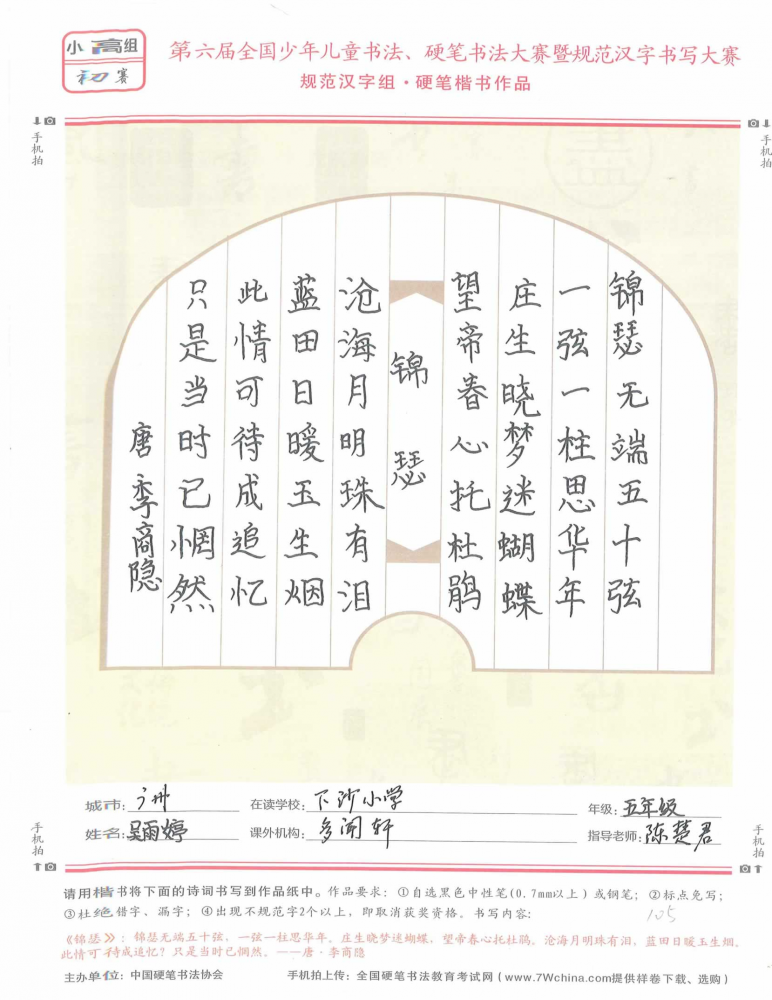 小高组
初赛
第六届全国少年儿童书法、硬笔书法大赛暨规范汉字书写大赛
规范汉字组·硬笔楷书作品
手机拍
手机拍
锦瑟无端五十弦
一弦一柱思华年
庄生晓梦迷蝴蝶
望帝春心托杜鹃
锦瑟
沧海月明珠有泪
蓝田日暖玉生烟
此情可待成追忆
只是当时已惘然
唐 李商隐
城市:广州 在读学校:下沙小学 年级:五年级
姓名:吴雨婷 课外机构:多闻轩 指导老师:陈楚君
手机拍
手机拍
请用楷书将下面的诗词书写到作品纸中。作品要求:①自选黑色中性笔(0.7mm以上)或钢笔;②标点免写;
③杜绝错字、漏字;④出现不规范字2个以上,即取消获奖资格。书写内容:
105
《锦瑟》:锦瑟无端五十弦、一弦一柱思华年。庄生晓梦迷蝴蝶、望帝春心托杜鹃。沧海月明珠有泪,蓝田日暖玉生烟。
此情可待成追忆?只是当时已惘然。——唐·李商隐
主办单位:中国硬笔书法协会 手机拍上传:全国硬笔书法教育考试网(www.7Wchina.com提供样卷下载、选购)